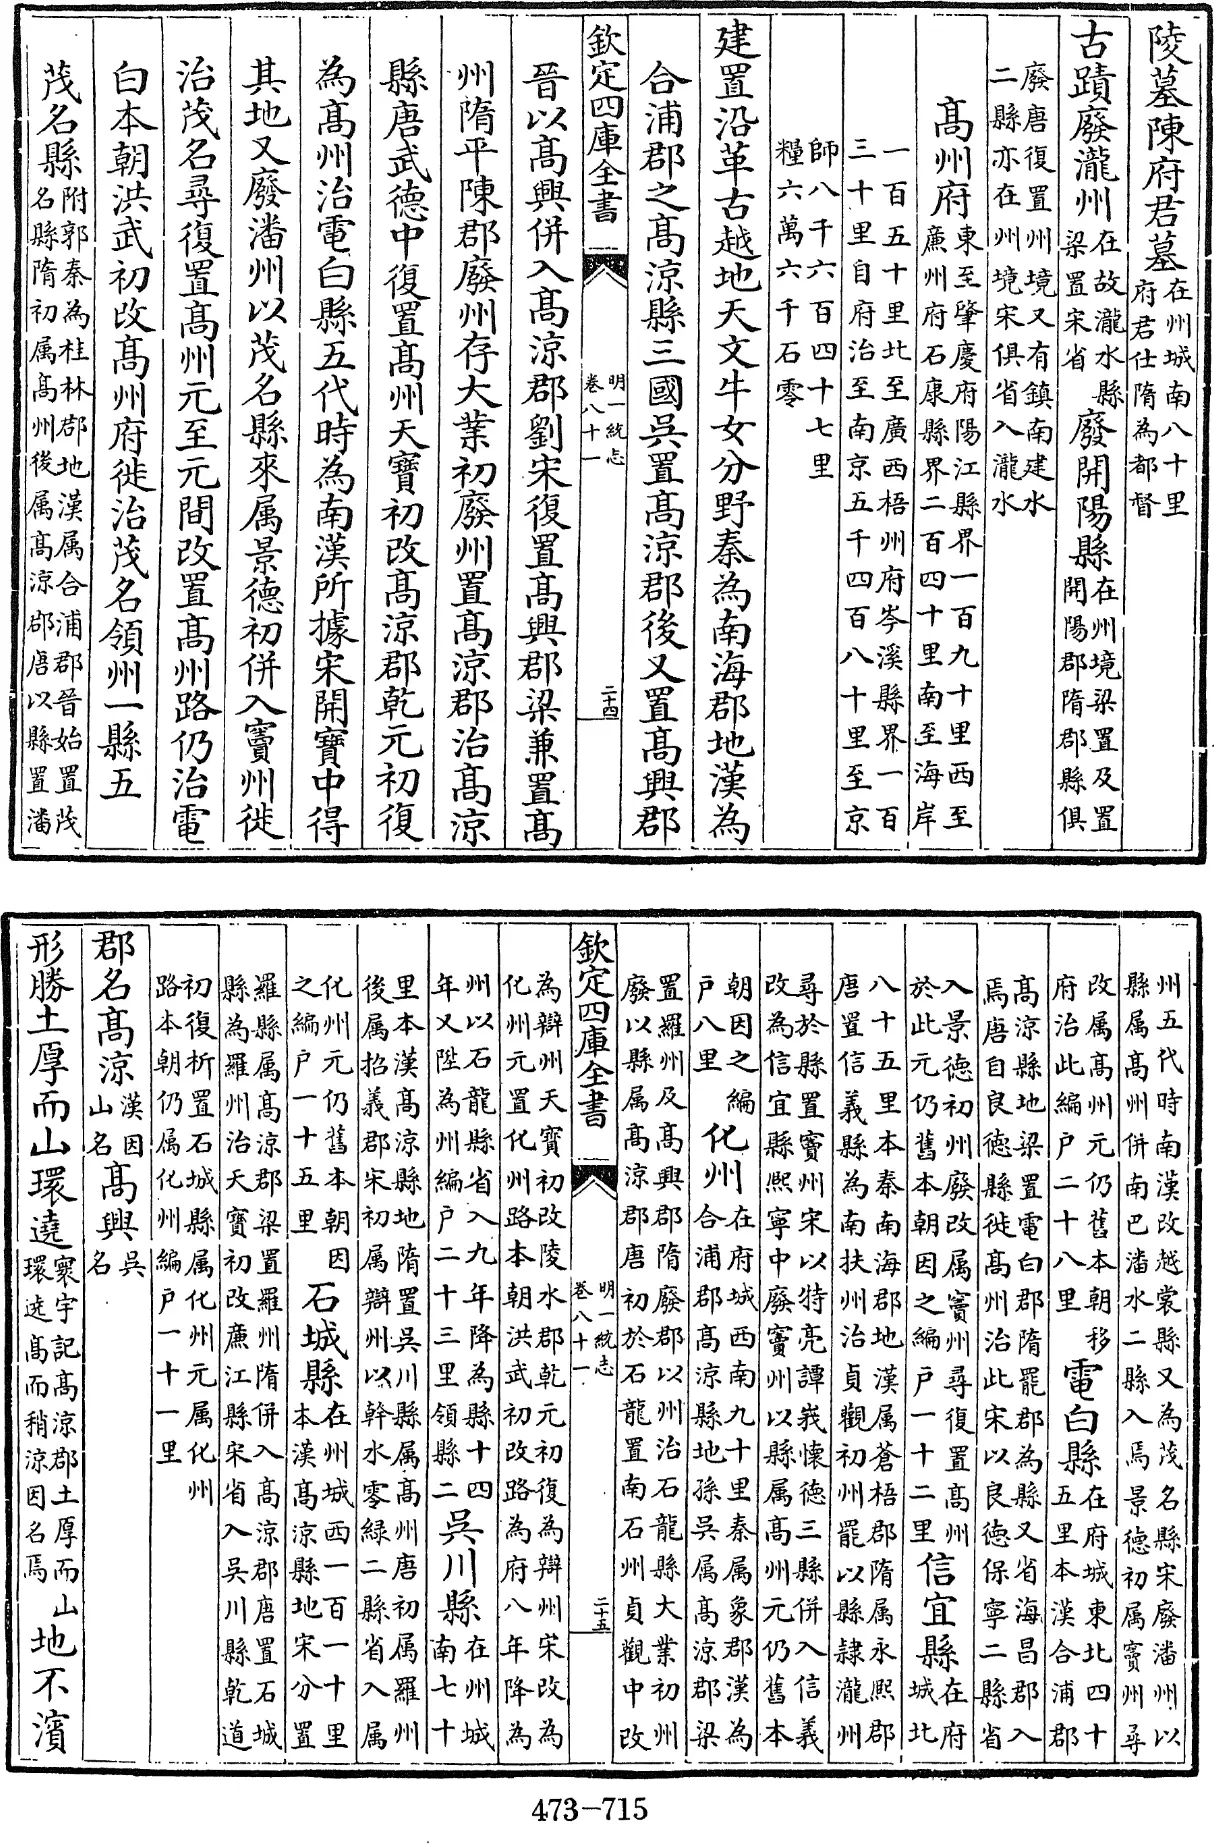 陵墓陳府君墓在州城南八十里府君仕隋為都督
古蹟廢瀧州在故瀧水縣梁置宋省廢開陽縣在州境梁置及置開陽郡隋郡縣俱
廢唐復置州境又有鎮南建水二縣亦在州境宋俱省入瀧水
高州府東至肇慶府陽江縣界一百九十里西至廉州府石康縣界二百四十里南至海岸
一百五十里北至廣西梧州府岑溪縣界一百三十里自府治至南京五千四百八十里至京
師八千六百四十七里糧六萬六千石零
建置沿革古越地天文牛女分野秦為南海郡地漢為
合浦郡之高涼縣三國吳置高涼郡後又置高興郡
欽定四庫全書 明一統志卷八十一 二十四
晉以高興併入高涼郡劉宋復置高興郡梁兼置高
州隋平陳郡廢州存大業初廢州置高涼郡治高涼
縣唐武德中復置高州天寶初改高涼郡乾元初復
為高州治電白縣五代時為南漢所據宋開寶中得
其地又廢潘州以茂名縣來属景德初併入竇州徙
治茂名尋復置高州元至元間改置高州路仍治電
白本朝洪武初改高州府徙治茂名領州一縣五
茂名縣附郭秦為桂林郡地漢属合浦郡晉始置茂名縣隋初属高州後属高涼郡唐以縣置潘
州五代時南漢改越裳縣又為茂名縣宋廢潘州以縣属高州併南巴潘水二縣入焉景德初属竇州尋
改属高州元仍舊本朝移府治此編户二十八里電白縣在府城東北四十五里本漢合浦郡
高涼縣地梁置電白郡隋罷郡為縣又省海昌郡入焉唐自良德縣徙高州治此宋以良德保寧二縣省
入景德初州廢改属竇州尋復置高州於此元仍舊本朝因之編户一十二里信宜縣在府城北
八十五里本秦南海郡地漢属蒼梧郡隋属永熙郡唐置信義縣為南扶州治貞觀初州罷以縣隸瀧州
尋於縣置竇州宋以特亮譚峩懷德三縣併入信義改為信宜縣熙寧中廢竇州以縣属高州元仍舊本
朝因之編户八里化州在府城西南九十里秦属象郡漢為合浦郡高涼縣地孫吳属高涼郡梁
置羅州及高興郡隋廢郡以州治石龍縣大業初州廢以縣属高涼郡唐初於石龍置南石州貞觀中改
欽定四庫全書 明一統志卷八十一 二十五
為辯州天寶初改陵水郡乾元初復為辯州宋改為化州元置化州路本朝洪武初改路為府八年降為
州以石龍縣省入九年降為縣十四年又陞為州編户二十三里領縣二吳川縣在州城南七十
里本漢高涼縣地隋置吳川縣属高州唐初属羅州後属招義郡宋初属辯州以幹水零緑二縣省入属
化州元仍舊本朝因之編户一十五里石城縣在州城西一百一十里本漢高涼縣地宋分置
羅縣属高涼郡梁置羅州隋併入高涼郡唐置石城縣為羅州治天寶初改廉江縣宋省入吳川縣乾道
初復析置石城縣属化州元属化州路本朝仍属化州編户一十一里
郡名高涼漢因山名高興吳名
形勝土厚而山環遶寰宇記高涼郡土厚而山環遶高而稍涼因名焉地不濱
473-715